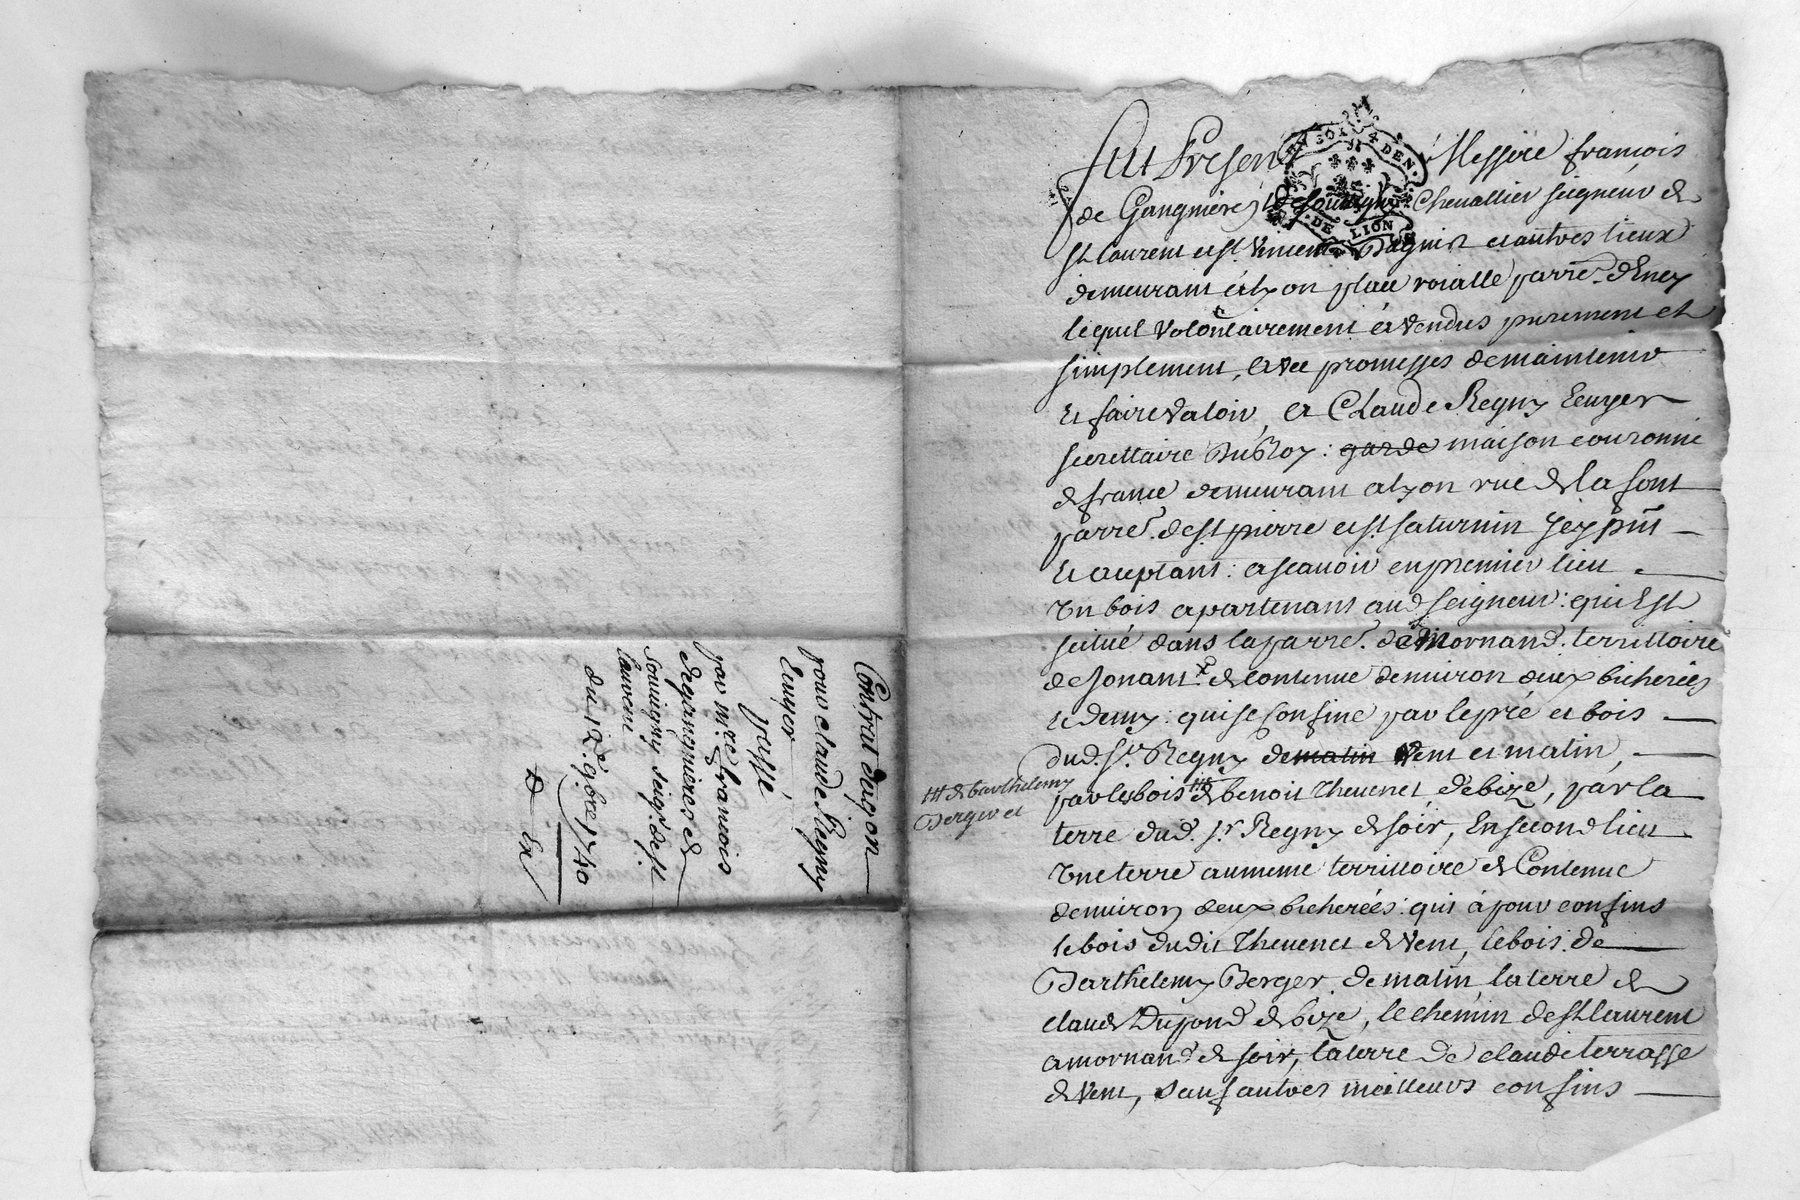 Contrat dacq.on
pour claude Regny
Ecuyer
passé
par m.re francois
de gangnieres de
souvigny seig.r de s.t
laurent
du 12.e 9bre 1740
Fut Present Messire francois
de Gangnieres de souvigny Chevallier seigneur de
st laurent et st. Vincent Dagnis et autres lieux
demeurant à lyon place roialle parre. dEney
lequel volontairement à vendus purement et
simplement, avec promesses de maintenir
Et faire valoir, a Claude Regny Ecuyer
secrettaire du Roy: garde maison couronne
de france demeurant a lyon rue de la font
parre. de st pierre et st saturnin icy pñt
Et acceptant: a scavoir en premier lieu
Un bois apartenant aud seigneur: qui Est
scitué dans la parre. de Mornand. territtoire
de Jonant de contenue denviron deux bicherées
et demy: qui se confine par le pré et bois
dud. sr. Regny de matin vent et matin,
par les bois de benoit Thevenet, de bize, par la
de barthelemy
Berger et
terre dud. sr Regny de soir, En second lieu
Une terre au meme territtoire de Contenue
denviron deux bicherées: qui à pour confins
le bois dudit Thevenet de vent, le bois de
Barthelemy Berger de matin, la terre de
claude Dupond de bize, le chemin de st laurent
a mornand de soir, la terre de claude terrasse
de vent, sauf autres meilleurs confins
SOL 4 DEN.
DE LION